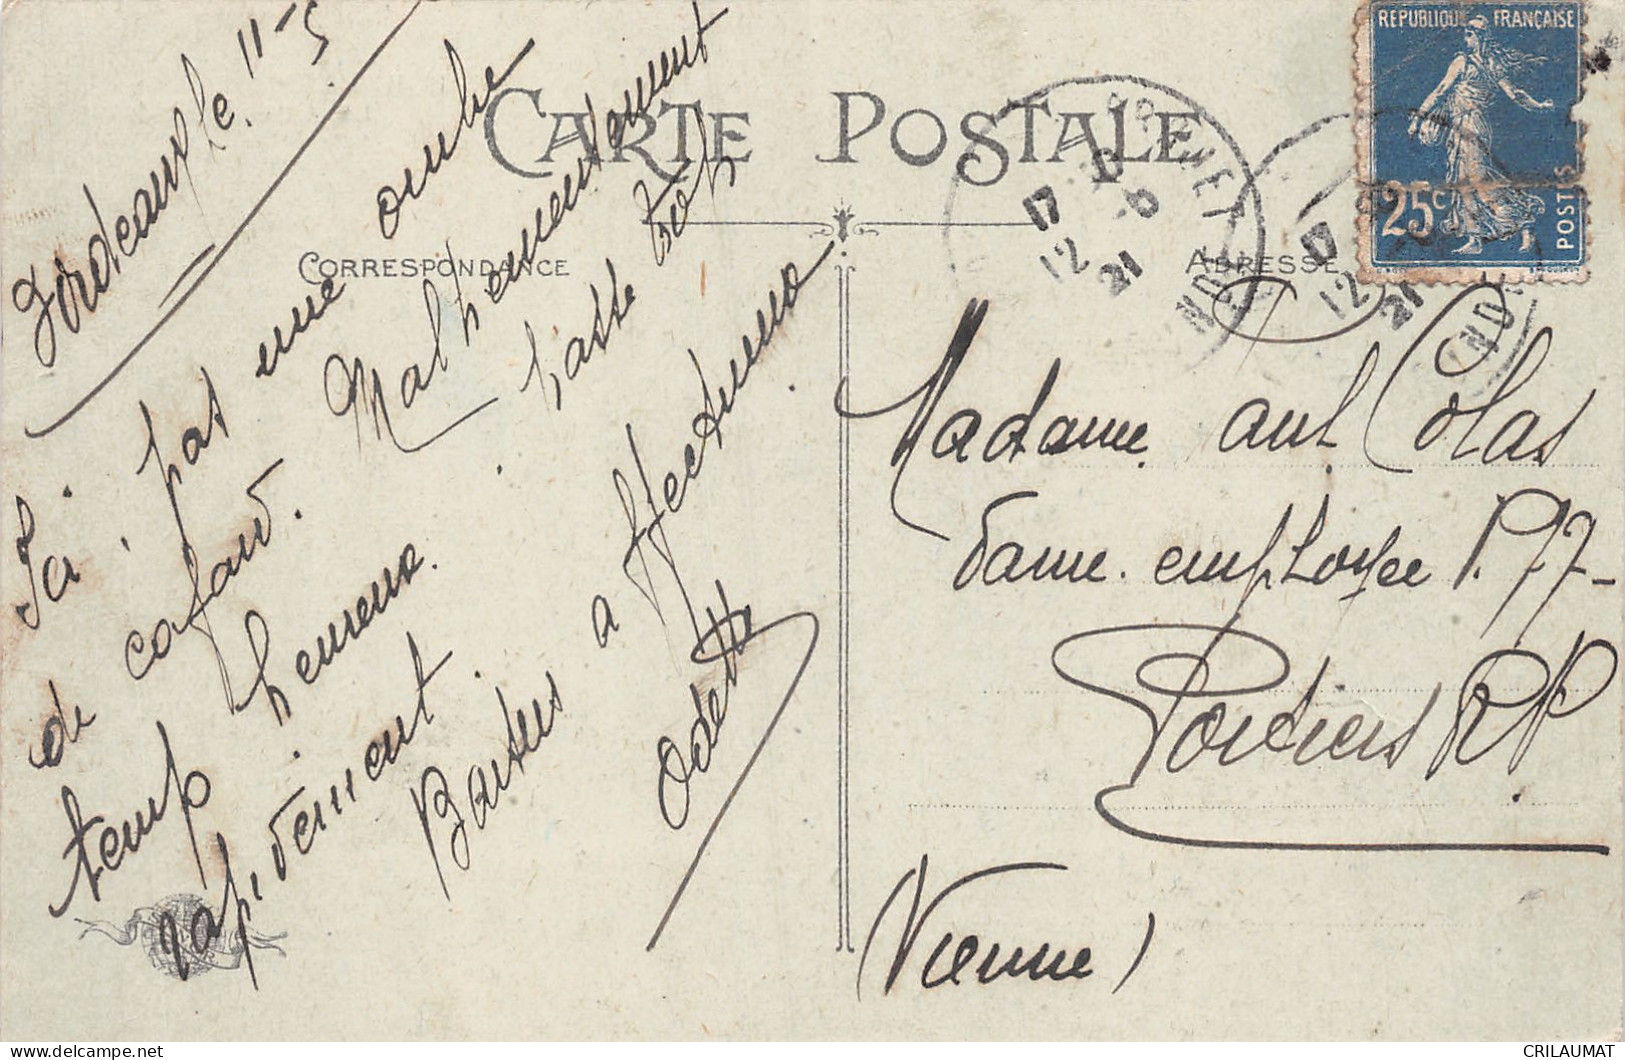 CARTE POSTALE
CORRESPONDANCE
ADRESSE
REPUBLIQUE FRANÇAISE
25c
POSTES
17
12 - 5
21
17
12
21
Bordeaux le 11-5
J'ai pas une ombre
de cafard. Malheureusement
temp heureux. passe trop
rapidement.
Baisers affectueux
Odette
Madame Colas
Dame employée P.T.T-
Poitiers RP
(Vienne)
CRILAUMAT